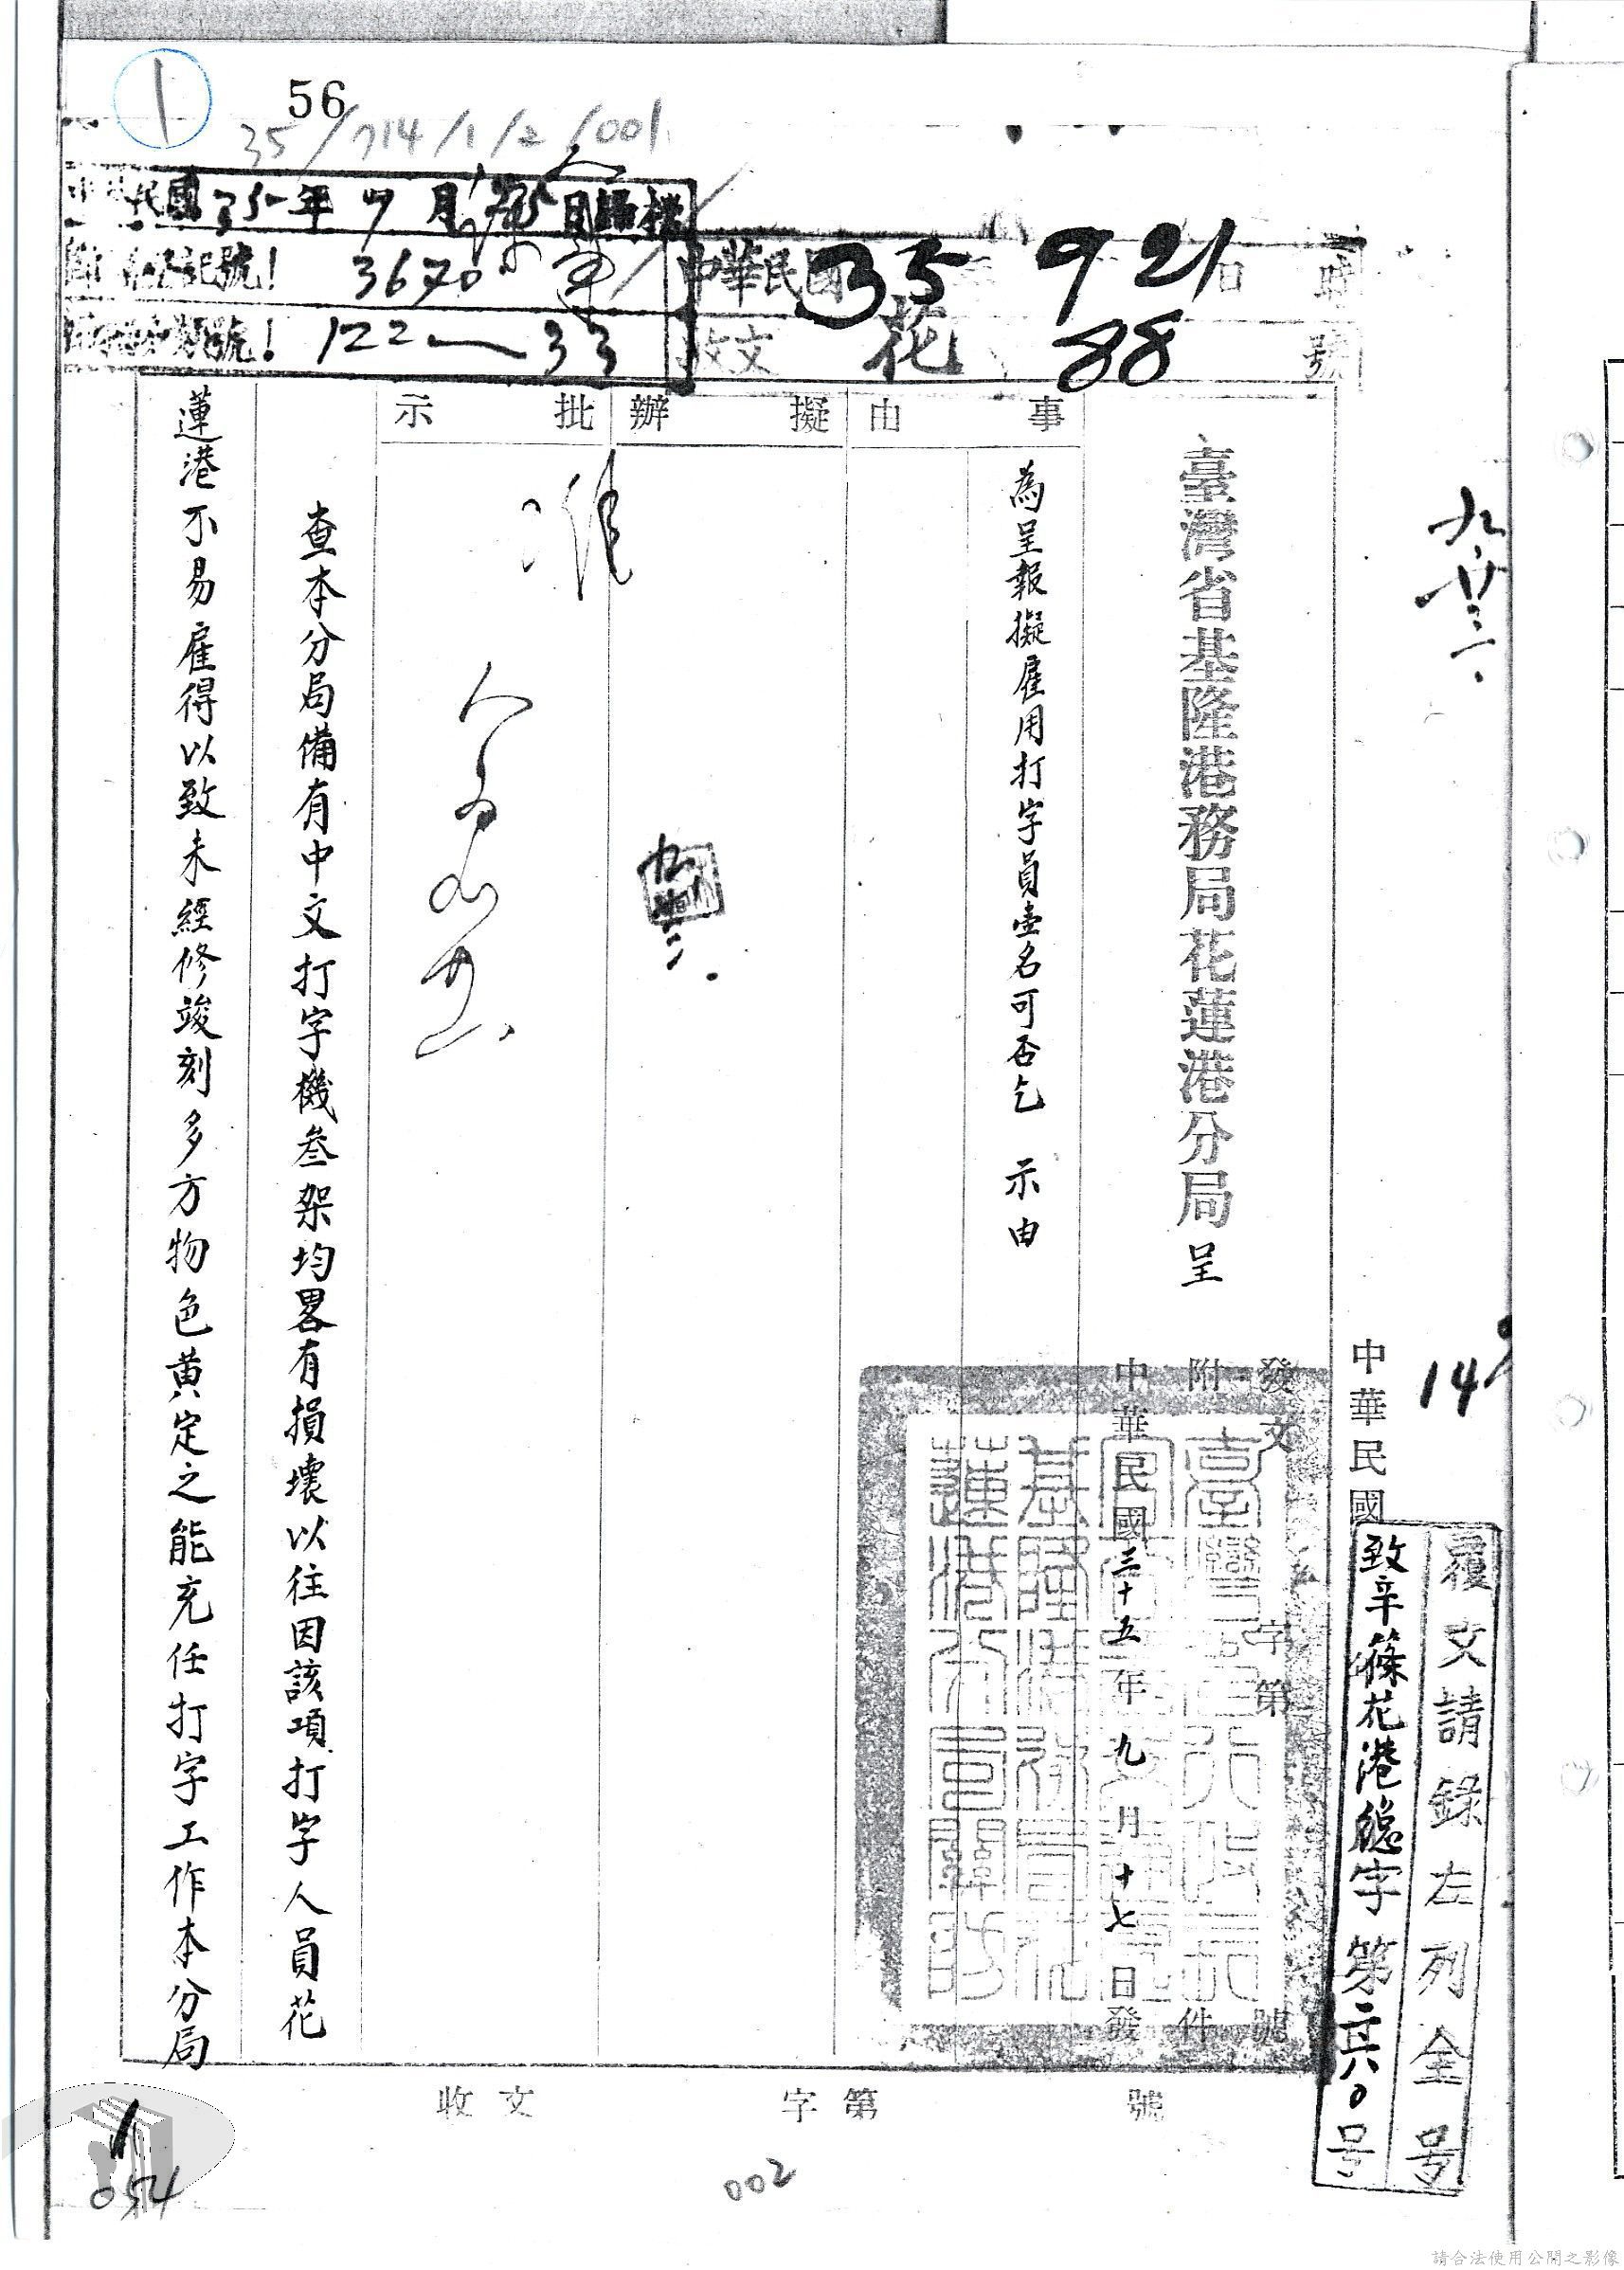 1
56
35/714/1/2/001
民國35年9月 日歸檔
記號! 3670
號! 122—33
中華民國 35 9 21 日 時
收文 花 88 號
九、廿三、
14
中華民國
履文請錄左列全号
致辛篠花港總字第二六〇号
臺灣省基隆港務局花蓮港分局 呈
發文 字第 號
附 件
中華民國三十五年九月十七日發
臺灣省行政長
基隆港務局花
蓮港分局關防
事由
為呈報擬雇用打字員壹名可否乞 示由
擬辦
批示
准
九
查本分局備有中文打字機叁架均畧有損壞以往因該項打字人員花
蓮港不易雇得以致未經修竣刻多方物色黄定之能充任打字工作本分局
收文 字第 號
002
054
請合法使用公開之影像